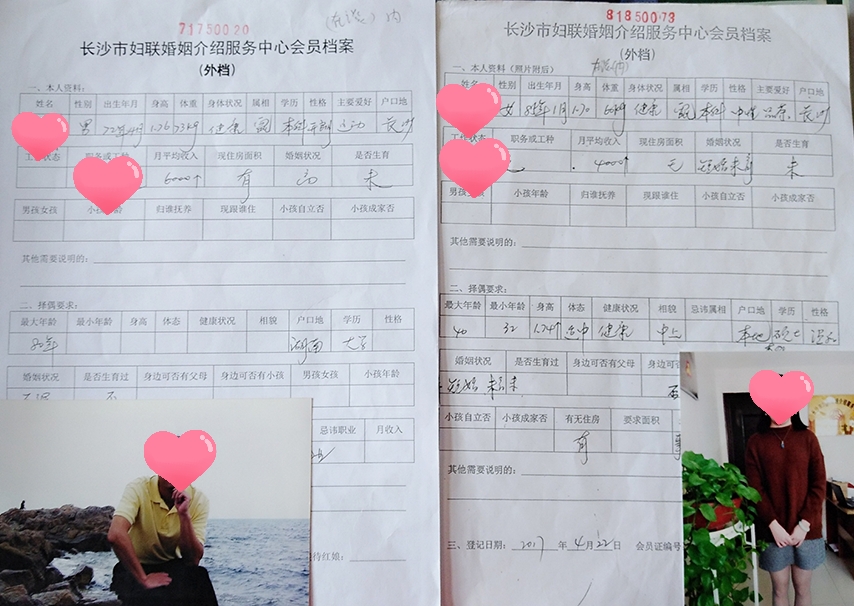 71750020
长沙市妇联婚姻介绍服务中心会员档案
(外档)
一、本人资料:
姓名 性别 出生年月 身高 体重 身体状况 属相 学历 性格 主要爱好 户口地
男 72年4月 1.76 73kg 健康 本科 开朗 运动 长沙
工作状态 职务或工种 月平均收入 现住房面积 婚姻状况 是否生育
6000↑ 有 未
男孩女孩 小孩年龄 归谁抚养 现跟谁住 小孩自立否 小孩成家否
其他需要说明的:
二、择偶要求:
最大年龄 最小年龄 身高 体态 健康状况 相貌 户口地 学历 性格
湖南 大专
婚姻状况 是否生育过 身边可否有父母 身边可否有小孩 男孩女孩 小孩年龄
否
忌讳职业 月收入
待红娘:
81850073
长沙市妇联婚姻介绍服务中心会员档案
(外档)
一、本人资料(照片附后)
姓名 性别 出生年月 身高 体重 身体状况 属相 学历 性格 主要爱好 户口地
女 1.70 60kg 健康 本科 中性 长沙
工作状态 职务或工种 月平均收入 现住房面积 婚姻状况 是否生育
4000↑ 无 短婚未育 未
男孩女孩 小孩年龄 归谁抚养 现跟谁住 小孩自立否 小孩成家否
其他需要说明的:
二、择偶要求:
最大年龄 最小年龄 身高 体态 健康状况 相貌 忌讳属相 户口地 学历 性格
40 32 1.74↑ 适中 健康 中上 本地 硕士 温和
婚姻状况 是否生育过 身边可否有父母
短婚 未
小孩自立否 小孩成家否 有无住房 要求面积
有
其他需要说明的:
三、登记日期: 2017 年 4 月 22 日 会员证编号